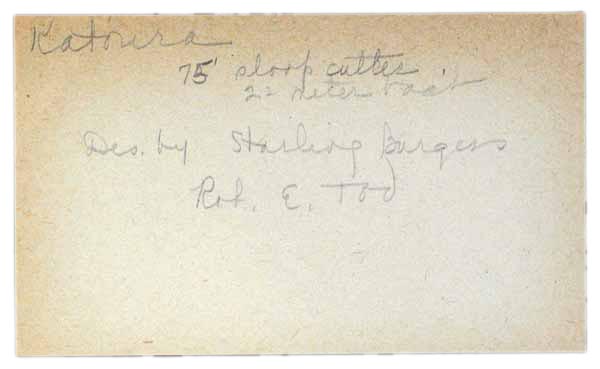 Katoura
75' sloop cutter.
22 meter boat
Des. by Starling Burgess
Rob. E. Tod